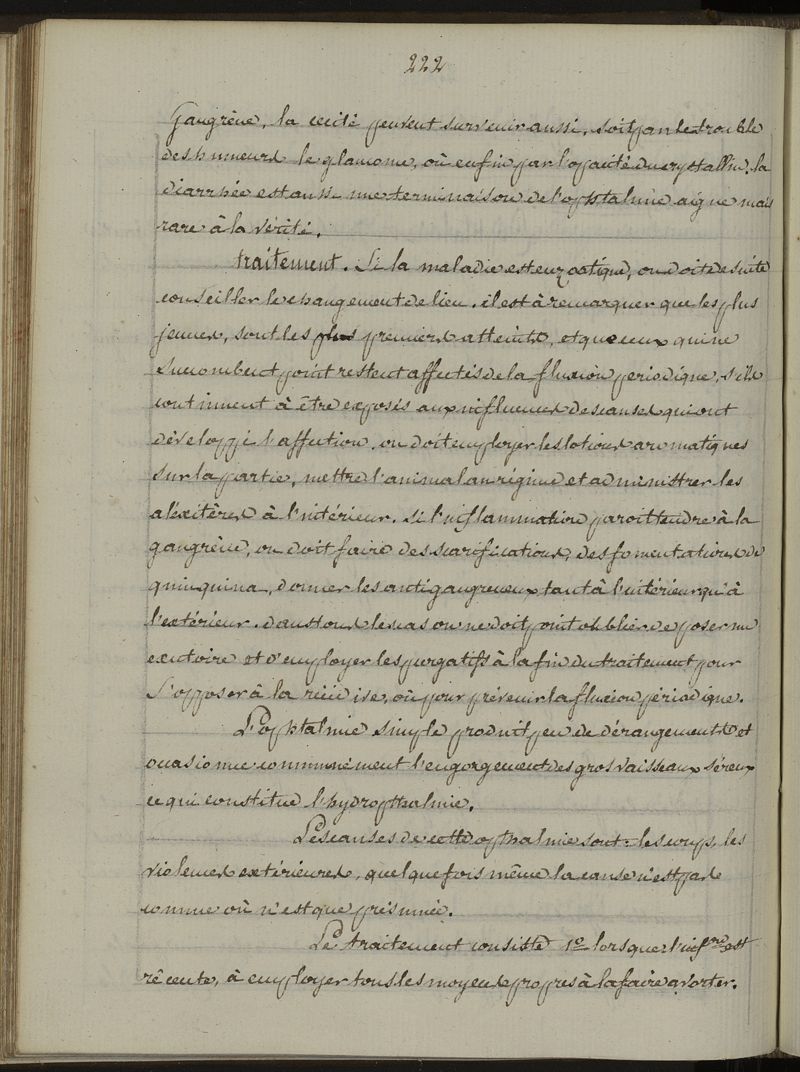 222
gangrène, la cécité peuvent survenir aussi, soit par le trouble
des humeurs le glaucome, où enfin par l'opacité du crystallin. la
diarrhée est aussi une terminaison de l'ophtalmie aigue mais
rare à la vérité.
traitement. Si la maladie est enzootique, on doit de suite
conseiller le changement de lieu. il est à remarquer que les plus
jeunes, sont les plus premiers atteints, et que ceux qui ne
succombent point restent affectés de la fluxion périodique, s'ils
continuent à être exposés aux influences des causes qui ont
développé l'affection. on doit employer les lotions aromatiques
sur la partie, mettre l'animal au régime et administrer les
aléxitères à l'intérieur. si l'inflammation paroit tendre à la
gangrène, on doit faire des scarifications, des fomentations de
quinquina, donner les antigangreneux tant à l'intérieur qu'à
l'extérieur. dans tous les cas on ne doit point oublier de poser un
exutoire et d'employer les purgatifs à la fin du traitement pour
s'opposer à la récidive, où pour prévenir la fluxion périodique.
L'ophtalmie simple produit peu de dérangements et
occasionne communément l'engorgement des gros vaisseaux séreux
ce qui constitue l'hydropthalmie.
Les causes de cette opthalmie sont: les coups, les
violences extérieures, quelquefois même la cause n'est pas
connue où n'est que présumée.
Le traitement consiste 1º lorsque l'infon est
récente, à employer tous les moyens propres à la faire avorter.